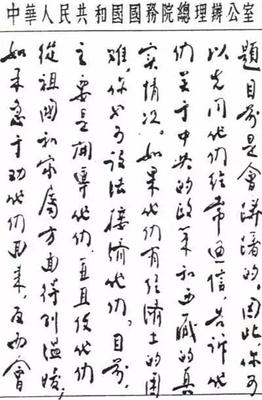 中華人民共和國國務院總理辦公室
題目前是會躊躇的。因此,你可
以先同他们经常通信,告訴他
们关于中共的政策和西藏的真
实情况。如果他们有经濟上的困
难,你也可设法接濟他们。目前,
主要是開導他们,並且使他们
從祖國和家屬方面得到溫暖,
如果急于劝他们回来,反而會